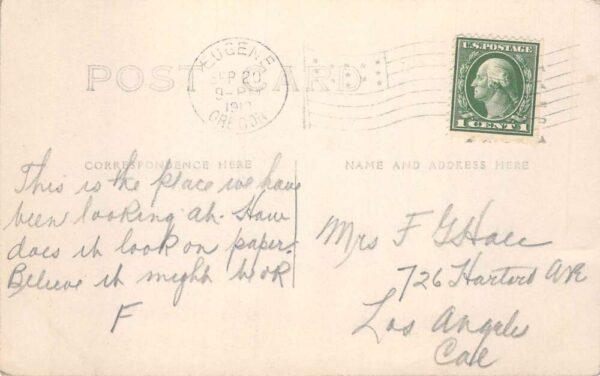 POST CARD
EUGENE
SEP 20
9-PM
191
OREGON
U.S. POSTAGE
1 CENT 1
CORRESPONDENCE HERE
NAME AND ADDRESS HERE
This is the place we have
been looking at. How
does it look on paper.
Believe it might work
F
Mrs F G Hall
726 Hartford Ave
Los Angeles
Cal